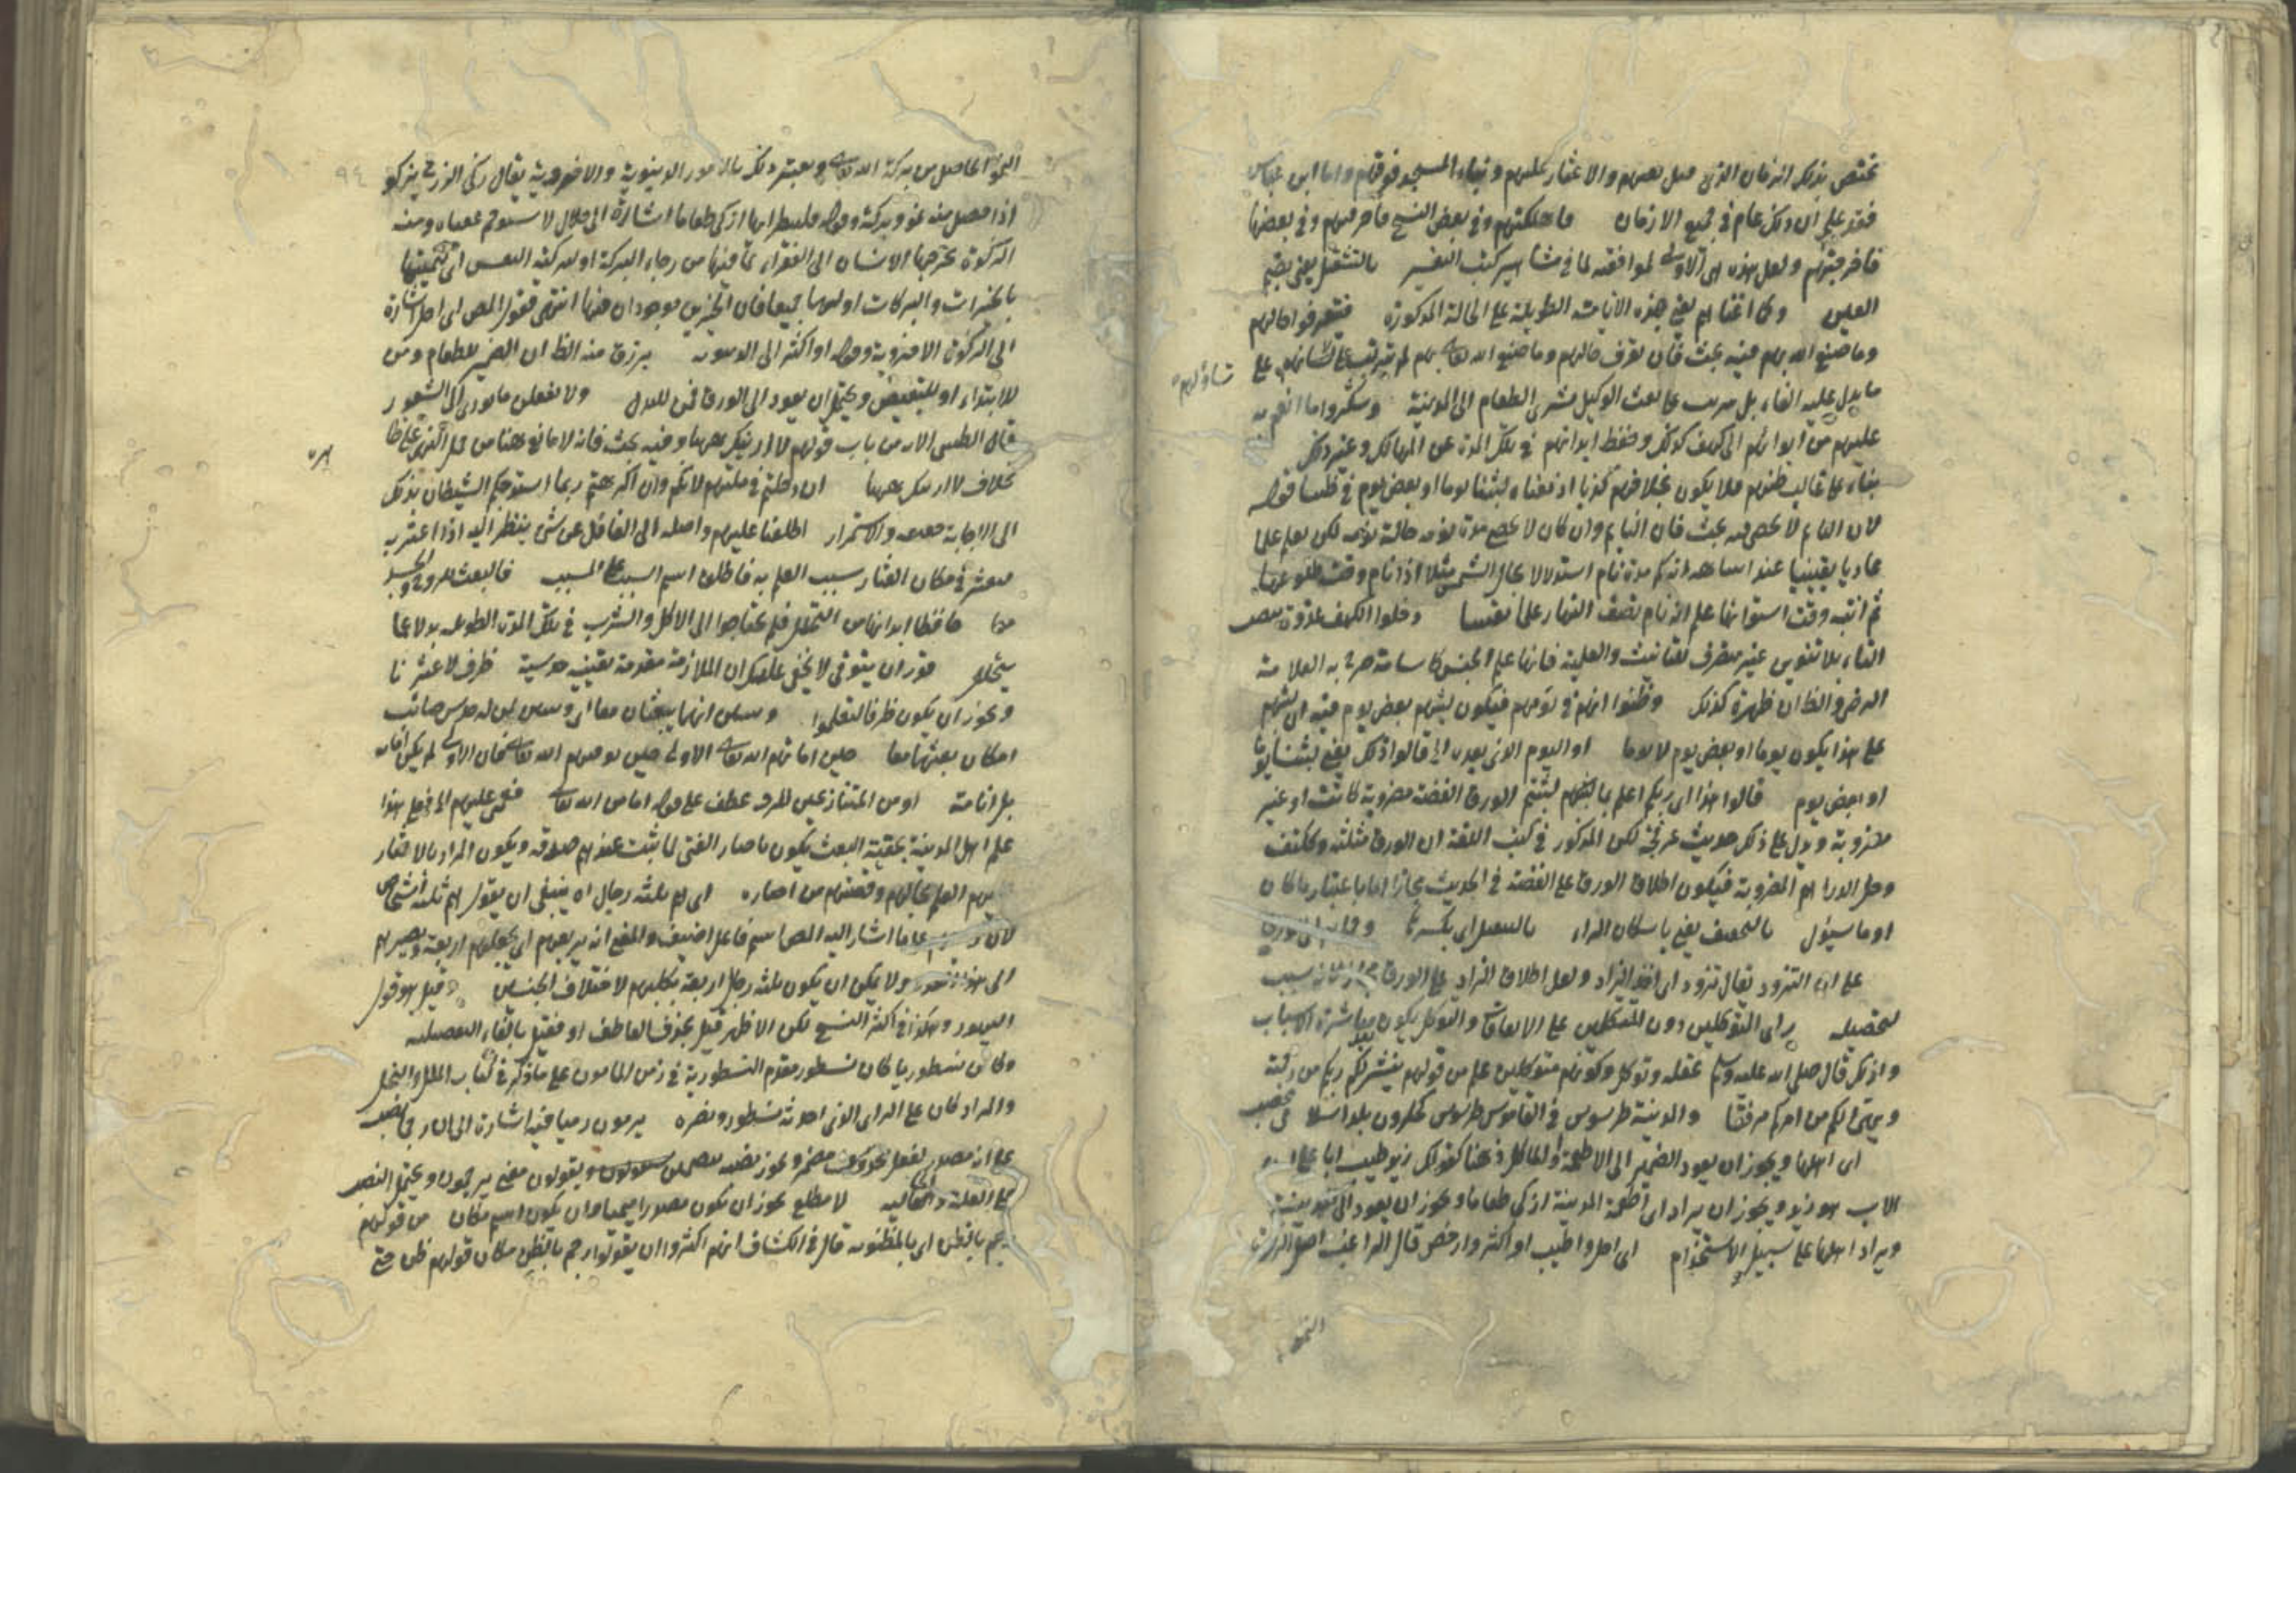 تختص بذلك الزمان الذي قبل بعثهم والاعثار عليهم وبناء المسجد فوقهم واما ابن عباس
فقد علم ان ذلك عام في جميع الازمان فاهلكتهم وفي بعض النسخ فاحرقهم وفي بعضها
فاخرجتهم ولعل هذه هي الاولى لموافقته لما في مشاهير كتب التفسير بالتثقيل يعني بضم
العين وكما انمناهم يعني هذه الانامة الطويلة على الحالة المذكورة فيتعرفوا حالهم
وما صنع الله بهم فيه بحث فان تعرف حالهم وما صنع الله تعالى بهم لم يترتب على تسائلهم على
تساؤلهم
ما يدل عليه الفاء بل على بعث الوكيل مشتري الطعام الى المدينة وشكروا ما انعم به
عليهم من ايوائهم الى كهف كذلك وحفظ ابدانهم في تلك المدة عن المهالك وغير ذلك
بناء على غالب ظنهم فلا يكون بخلافهم كذبا اذ معناه لبثنا يوما او بعض يوم في ظننا قوله
لان النائم لا يحصى فيه بحث فان النائم وان كان لا يحصى مدة نومه حالة نومه لكن يعلم علما
عاديا يقينيا عند انه كم مدة نام استدلالا بحال الشمس مثلا اذا نام وقت طلوعها
ثم انتبه وقت استوائها علم انه نام نصف النهار علما يقينيا دخلوا الكهف غدوة
التاء بلا تنوين غير منصرف للتانيث والعلمية فانها علم الجنس كاسامة صرح به العلامة
الرضي والظ ان ظهيرة كذلك وظنوا انهم في يومهم فيكون لبثهم بعض يوم فيه ان لبثهم
على هذا يكون يوما او بعض يوم لا يوما او اليوم الذي بعده الخ قالوا ذلك يعني لبثنا يوما
او بعض يوم قالوا هذا اى ربكم اعلم بما لبثتم الورق الفضة مضروبة كانت او غير
مضروبة ويدل على ذلك حديث عرفجة لكن المذكور في كتب اللغة ان الورق مثلثة وككتف
وجبل الدراهم المضروبة فيكون اطلاق الورق على الفضة في الحديث مجازا اما باعتبار ما كان
او ما سيؤل بالتخفيف يعني باسكان الراء بالتثقيل اى بكسرها
على ان التزود يقال تزود اى اخذ الزاد ولعل اطلاق الزاد على الورق مجاز لانه سبب
لتحصيله راى المتوكلين دون المتكلين على الاتفاقات والتوكل يكون بعد مباشرة الاسباب
ولذلك قال صلى الله عليه وسلم عقله وتوكل وكونهم متوكلين علم من قولهم ينشر لكم ربكم من رحمته
ويهيئ لكم من امركم مرفقا والمدينة طرسوس في القاموس طرسوس كحلزون بلد اسلامي مخصب
اى اهلها ويجوز ان يعود الضمير الى الاطعمة والماكل ذهنا كقولك زيد طيب ابا على ان
الاب هو زيد ويجوز ان يراد اى اطعمة المدينة ازكى طعاما ويجوز ان يعود الى المدينة
ويراد اهلها على سبيل الاستخدام اى احل واطيب او اكثر وارخص قال الراغب اصل الزكوة
النمو
٩٤
النمو الحاصل من بركة الله تعالى ويعتبر ذلك بالامور الدنيوية والاخروية يقال زكى الزرع يزكو
اذا حصل منه نمو وبركة وقوله فلينظر ايها ازكى طعاما اشارة الى حلال لا يستوخم عقباه ومنه
الزكوة يخرجها الانسان الى الفقراء لما فيها من رجاء البركة او لتزكية النفس اى تنميتها
بالخيرات والبركات او لهما جميعا فان الخيرين موجودان فيها انتهى فقول المص اى احل اشارة
الى الزكوة الاخروية وقوله او اكثر الى الدنيوية برزق منه الظ ان الضمير للطعام ومن
للابتداء او للتبعيض ويحتمل ان يعود الى الورق فمن للبدل ولا يفعلن ما يؤدى الى الشعور
قال الطيبي الاول من باب قولهم لا ارينك ههنا وفيه بحث فانه لا مانع ههنا من حمل النهي على ظا
هره
بخلاف لا ارينك ههنا ان دخلتم في ملتهم لانكم وان اكرهتم ربما استدرجكم الشيطان بذلك
الى الاجابة والاستمرار اطلعنا عليهم واصله الى الغافل عن شئ ينظر اليه اذا عثر به
فيعثر في مكان العثار سبب العلم به فاطلق اسم السبب على المسبب فالبعث للروح والجسد
معا حافظا ابدانها من التحلل فلم يحتاجوا الى الاكل والشرب في تلك المدة الطويلة بدلا عما
يتحلل قدر ان يتوفى لا يخفى عليك ان الملازمة مقدمة يقينية حدسية ظرف لاعثرنا
ويجوز ان يكون ظرفا ليعلموا انهما يبعثان معا اى لمن له حدس صائب
امكان بعثهما معا حين اماتهم الله تعالى الاولى حين توفيهم الله تعالى فان الاولى لم يكن اماتة
بل انامة او من المتنازعين للرد عطف على قوله اما من الله تعالى فعمى عليهم الخ فعلى هذا
علم اهل المدينة بحقية البعث يكون باخبار الفتى لما ثبت عندهم صدقه ويكون المراد بالاعثار
عليهم العلم بحالهم وقصتهم من اخباره اى هم ثلثة رجال اه ينبغي ان يقول هم ثلثة اشخاص
لان على ما اشار اليه المص اسم فاعل اضيف والمعنى انه يربعهم اى يجعلهم اربعة ويصيرهم
الى هذا العدد ولا يمكن ان يكون ثلثة رجال اربعة بكلبهم لاختلاف الجنسين قيل هو قول
اليهود وهكذا في اكثر النسخ لكن الاظهر قيل بحذف العاطف او فقيل بالفاء التفصيلية
وكان نسطوريا كان نسطور مقدم النسطورية في زمن المامون على ما ذكر في كتاب الملل والنحل
والمراد كان على الراى الذي احدثه نسطور ونصره يرمون رميا فيه اشارة الى ان رجما نصب
على انه مصدر لفعل محذوف مضمر ويجوز نصبه ويقولون بمعنى يرجمون ويحتمل النصب
على العلة والحالية لا مطلع يجوز ان يكون مصدرا ميميا وان يكون اسم مكان من قولهم
رجم بالظن اى بالمظنون قال في الكشاف انهم اكثروا ان يقولوا رجم بالظن مكان قولهم ظن حتى